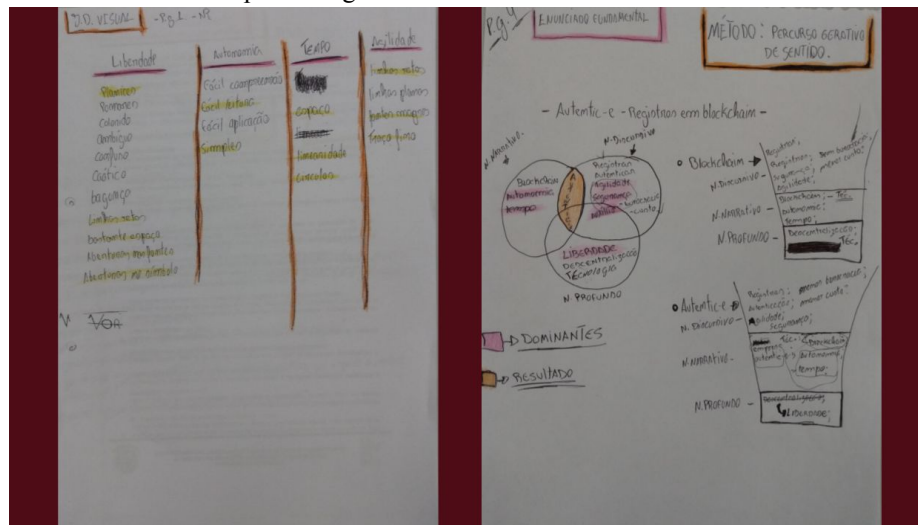 I.D. VISUAL - Pg.1 - Nº
Liberdade
Pássaros
Pantones
Colorido
Ambíguo
Confuso
Caótico
bagunça
Linhas retas
bastante espaço
Aberturas no símbolo
Autonomia
Fácil compreensão
Fácil leitura
Fácil aplicação
Simples
TEMPO
espaço
linearidade
círculos
Agilidade
Linhas retas
Linhas planas
traço fino
VOA
P.g. 4
ENUNCIADO FUNDAMENTAL
MÉTODO: PERCURSO GERATIVO
DE SENTIDO.
- Autentic-e - Registros em blockchain -
N. Narrativo
N. Discursivo
Blockchain
Autonomia
tempo
Registrar
Autenticar
Agilidade
Segurança
custo
LIBERDADE
DESCENTRALIZAÇÃO
TECNOLOGIA
N. PROFUNDO
DOMINANTES
RESULTADO
Blockchain
N. Discursivo -
Registrar;
Registros;
Segurança;
Agilidade;
menor custo;
N. NARRATIVO -
Blockchain; - TEC
autonomia;
tempo;
N. PROFUNDO -
Descentralização;
TEC.
Autentic-e
N. Discursivo -
Registrar;
autenticação;
Agilidade;
Segurança;
menor burocracia;
menor custo;
N. NARRATIVO -
TEC.
Blockchain
autentic-e
autonomia
tempo
N. PROFUNDO -
LIBERDADE;